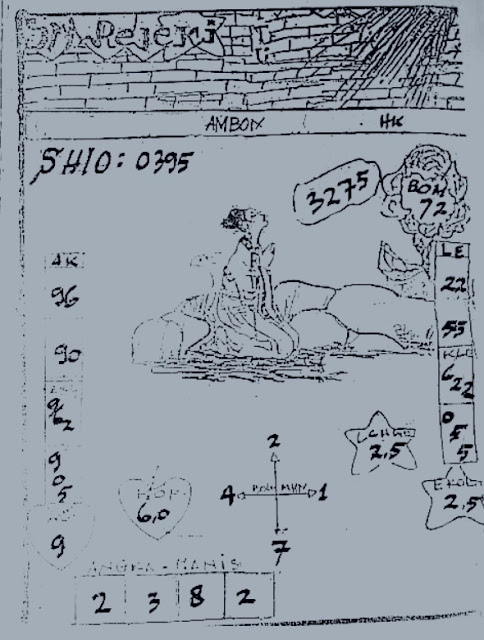 Sri Rejeki
AMBON HK
SHIO: 0395
3275
BOM
72
AK
96
90
9
6
2
9
0
5
9
LE
22
55
KLE
6
2 2
0
5
5
2,5
2,5
2
4 1
7
6,0
ANGKA-MANIS
2 3 8 2